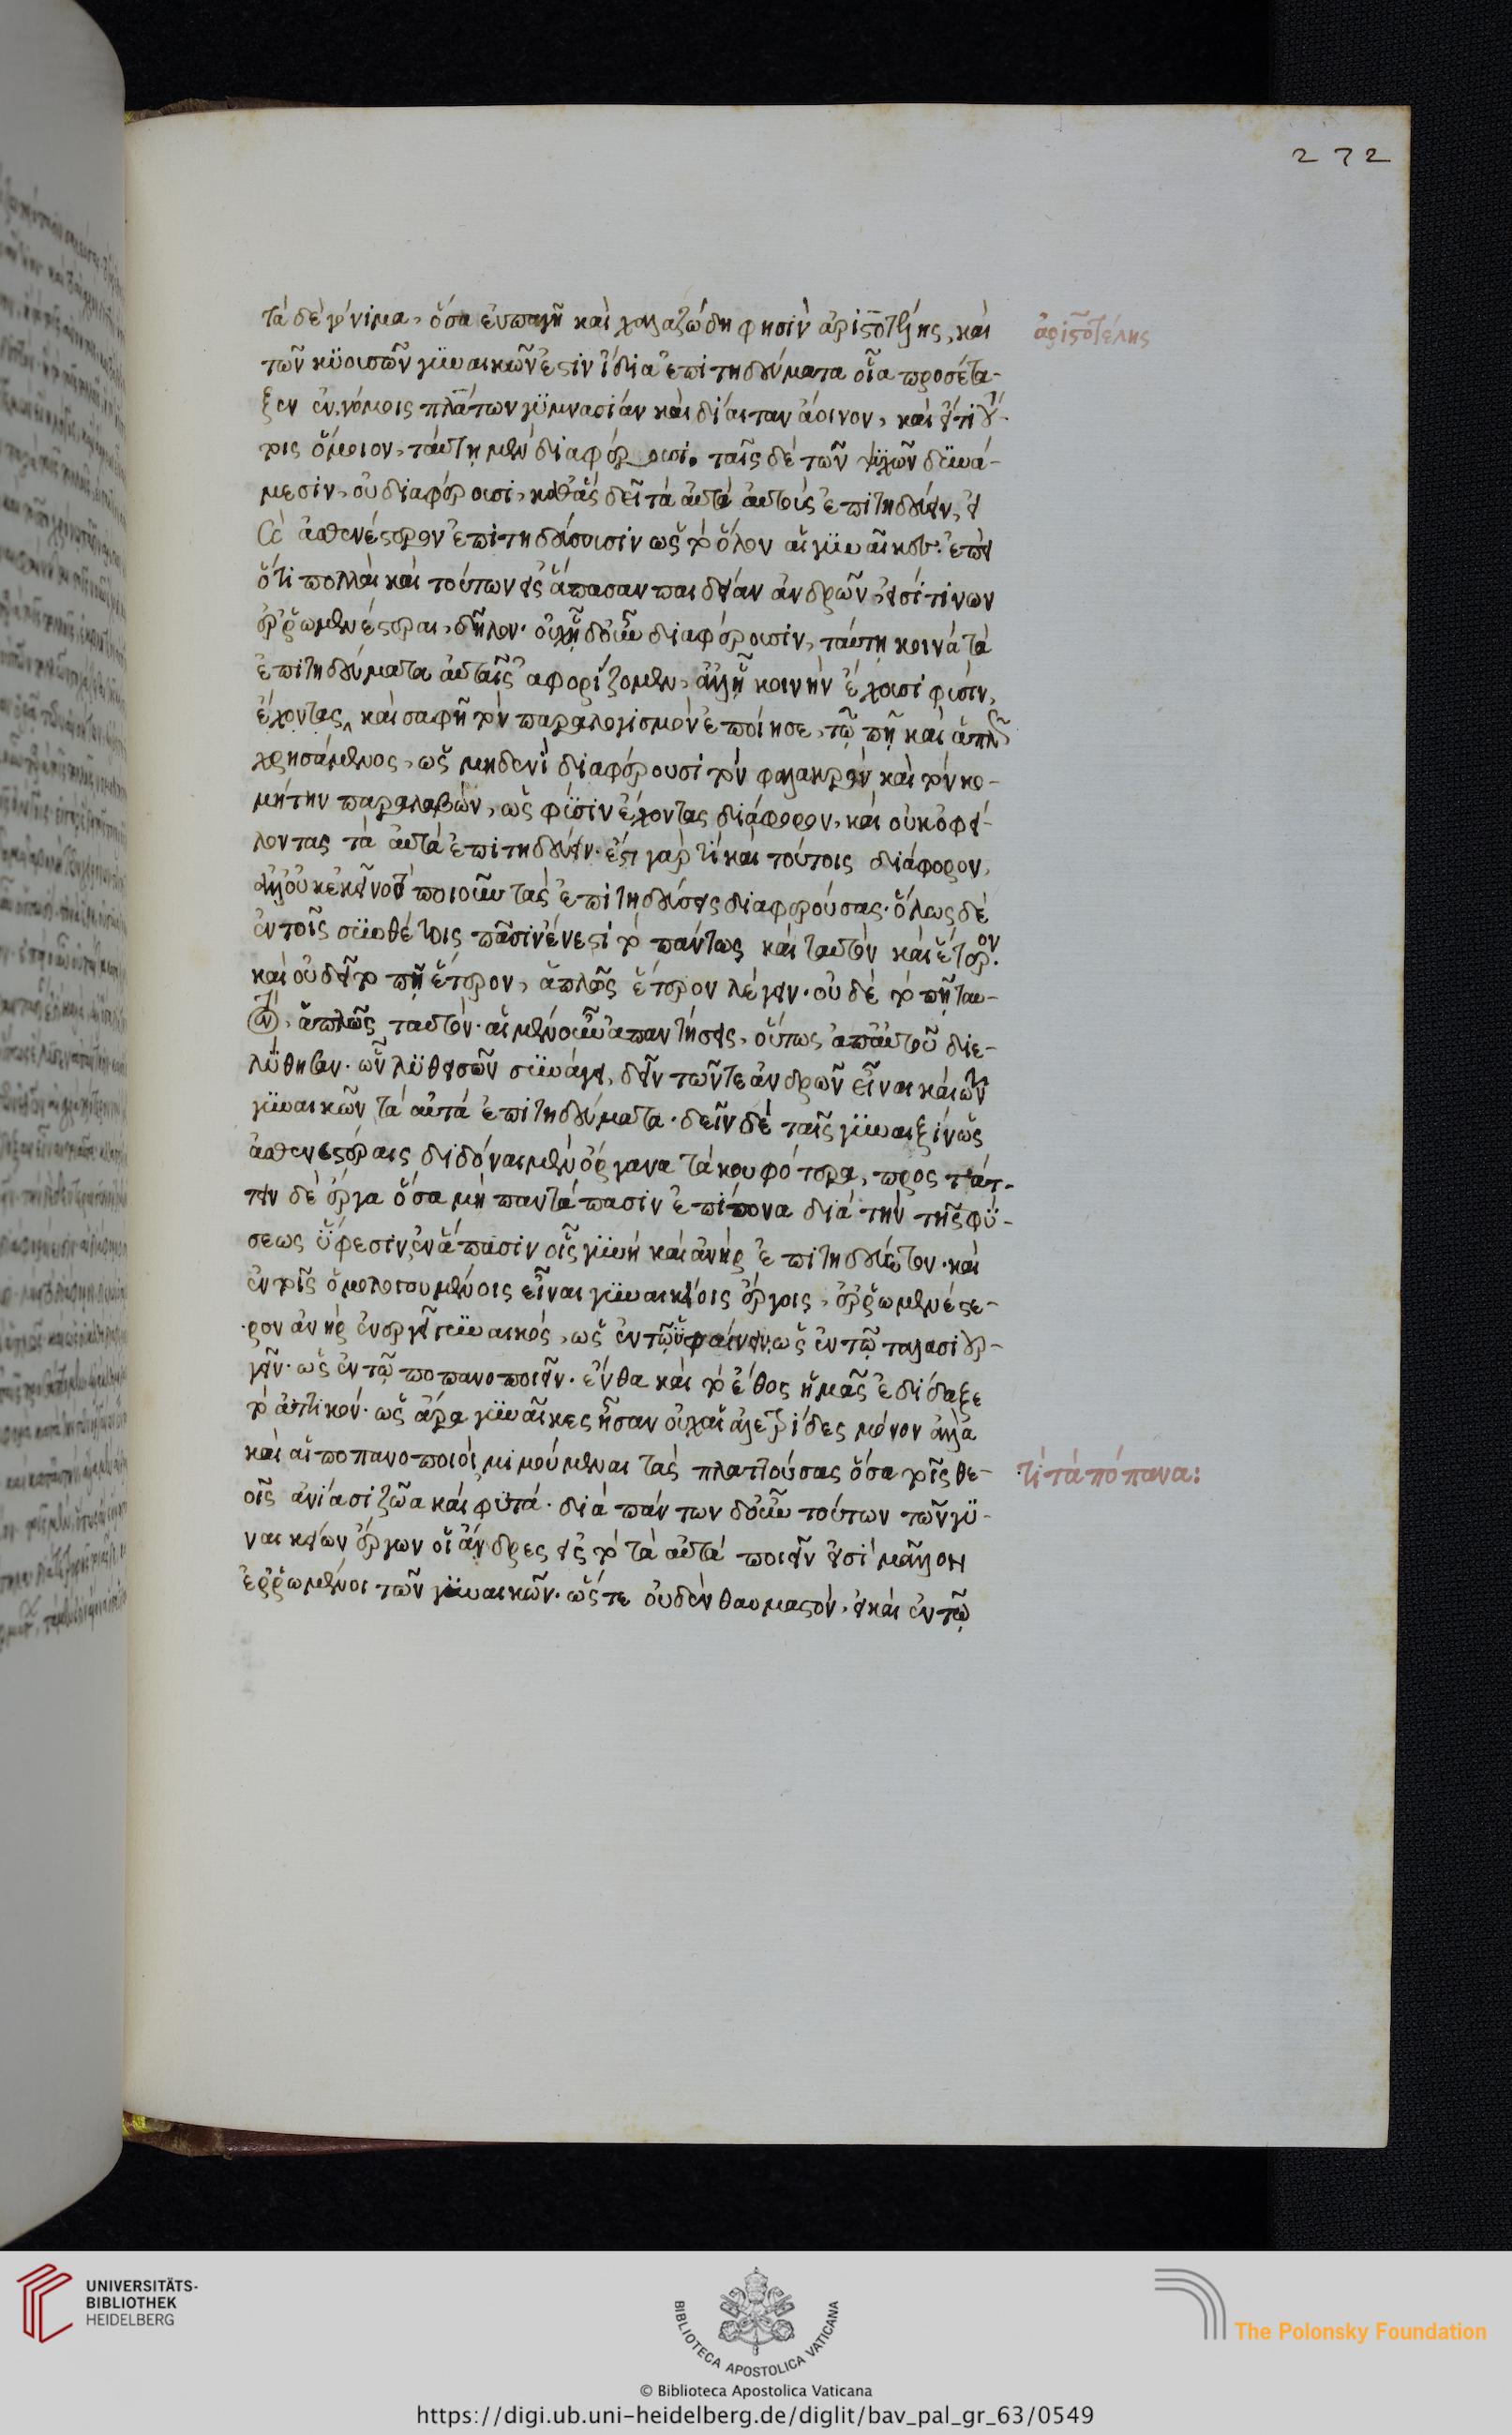 τὰ δὲ γόνιμα, ὅσα εὐπαγῆ καὶ χαλαζώδη φησὶν ἀριστοτέλης, καὶ
ἀριστοτέλης
τῶν κϋουσῶν γϋναικῶν ἐστὶν ἴδια ἐπιτηδεύματα οἷα προσέτα-
ξεν ἐν νόμοις πλάτων γϋμνασίαν καὶ δίαιταν ἄοινον, καὶ εἴ τι τού-
τοις ὅμοιον, ταύτῃ μὲν διαφέρουσι. ταῖς δὲ τῶν ψϋχῶν δϋνά-
μεσιν, οὐ διαφέρουσι, καθ' ἃς δεῖ τὰ αὐτὰ αὐτοὺς ἐπιτηδεύειν, εἰ
καὶ ἀσθενέστερον ἐπιτηδεύσουσιν ὡς τὸ ὅλον αἱ γϋναῖκες. ἐπεὶ
ὅτι πολλαὶ καὶ τούτων εἰς ἅπασαν παιδείαν ἀνδρῶν εἰσί τινων
ἐρρωμενέστεραι, δῆλον. οὐχ ᾗ δ' οὖν διαφέρουσιν, ταύτῃ κοινὰ τὰ
ἐπιτηδεύματα αὐταῖς ἀφορίζομεν, ἀλλ' ᾗ κοινὴν ἔχουσι φύσιν,
ἔχοντας, καὶ σαφῆ τὸν παραλογισμὸν ἐποίησε, τῷ πῇ καὶ ἁπλῶς
χρησάμενος, ὡς μηδενὶ διαφέρουσι τὸν φαλακρὸν καὶ τὸν κο-
μήτην παραλαβὼν, ὡς φϋσιν ἔχοντας διάφορον, καὶ οὐκ ὀφεί-
λοντας τὰ αὐτὰ ἐπιτηδεύειν. ἔστι γάρ τι καὶ τούτοις διάφορον,
ἀλλ' οὐκ ἐκεῖνο τὸ ποιοῦν τὰς ἐπιτηδεύσεις διαφερούσας. ὅλως δὲ
ἐν τοῖς σϋνθέτοις πᾶσιν ἔνεστι τὸ πάντως καὶ ταυτὸν καὶ ἕτερον.
καὶ οὐ δεῖ τὸ πῇ ἕτερον, ἁπλῶς ἕτερον λέγειν. οὐδὲ τὸ πῇ ταυ-
τὸν, ἁπλῶς ταυτόν. αἱ μὲν οὖν ἀπαντήσεις, οὕτως ἀπ' αὐτοῦ διε-
λύθησαν. ὧν λϋθεισῶν σϋνάγει, δεῖν τῶν τε ἀνδρῶν εἶναι καὶ τῶν
γϋναικῶν τὰ αὐτὰ ἐπιτηδεύματα. δεῖν δὲ ταῖς γϋναιξὶν ὡς
ἀσθενεστέραις διδόναι μὲν ὄργανα τὰ κουφότερα, προστάτ-
τειν δὲ ἔργα ὅσα μὴ παντάπασιν ἐπίπονα διὰ τὴν τῆς φϋ-
σεως ὕφεσιν, ἐν ἅπασιν οἷς γϋνὴ καὶ ἀνὴρ ἐπιτηδεύετον. καὶ
ἐν τοῖς ὁμολογουμένοις εἶναι γϋναικείοις ἔργοις, ἐρρωμενέστε-
ρον ἀνὴρ ἐνεργεῖ γϋναικός, ὡς ἐν τῷ ϋφαίνειν, ὡς ἐν τῷ ταλασιουρ-
γεῖν. ὡς ἐν τῷ ποπανοποιεῖν. ἔνθα καὶ τὸ ἔθος ἡμᾶς ἐδίδαξε
τὸ ἀττικόν. ὡς ἄρα γϋναῖκες ἦσαν οὐχ αἱ ἀλετρίδες μόνον ἀλλὰ
καὶ αἱ ποπανοποιοὶ μιμούμεναι τὰς πλαττούσας ὅσα τοῖς θε-
τί τὰ πόπανα:
οῖς ἀνίασι ζῶα καὶ φϋτά. διὰ πάντων δ' οὖν τούτων τῶν γϋ-
ναικείων ἔργων οἱ ἄνδρες εἰς τὸ τὰ αὐτὰ ποιεῖν εἰσὶ μᾶλλον
ἐρρωμένοι τῶν γϋναικῶν. ὥστε οὐδὲν θαυμαστὸν, εἰ καὶ ἐν τῷ
272
UNIVERSITÄTS-
BIBLIOTHEK
HEIDELBERG
BIBLIOTECA APOSTOLICA VATICANA
The Polonsky Foundation
© Biblioteca Apostolica Vaticana
https://digi.ub.uni-heidelberg.de/diglit/bav_pal_gr_63/0549